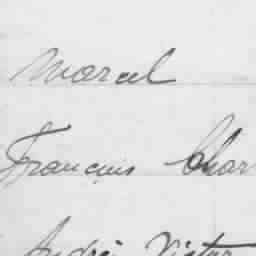 Marcel
François Char
André Victor